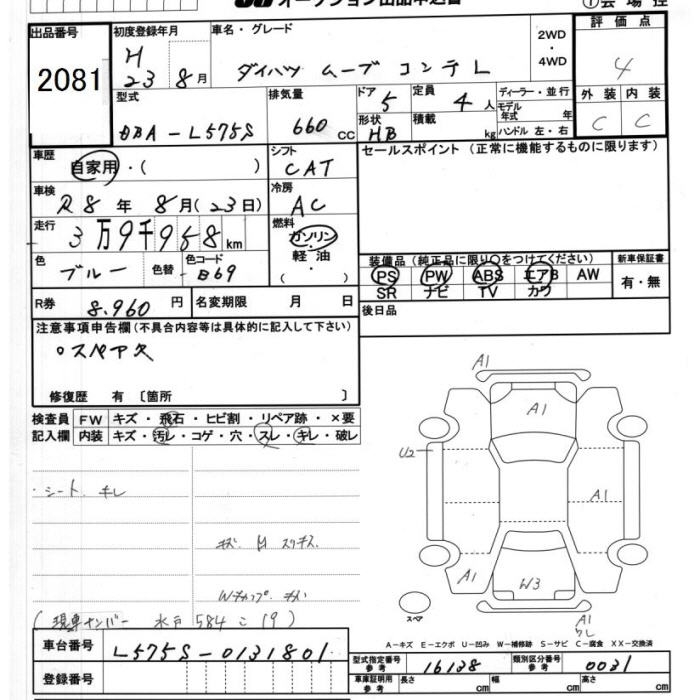 オークション出品申込書
①会場控
出品番号
2081
初度登録年月
H
23 8月
車名・グレード
ダイハツ ムーブ コンテ L
2WD
・
4WD
評価点
4
外装 内装
C C
型式
DBA-L575S
排気量
660 CC
ドア 5
形状 HB
定員 4人
積載 kg
ディーラー・並行
モデル年式 年
ハンドル 左・右
車歴
自家用・( )
シフト
CAT
セールスポイント (正常に機能するものに限ります)
車検
R8年 8月(23日)
冷房
AC
走行
3万9千958km
燃料
ガソリン
・
軽油
( )
色
ブルー
色替
色コード
B69
装備品 (純正品に限り○をつけてください)
PS PW ABS エアB AW
SR ナビ TV カワ
新車保証書
有・無
R券
8,960円
名変期限 月 日
後日品
注意事項申告欄(不具合内容等は具体的に記入して下さい)
○スペア欠
修復歴 有〔箇所 〕
検査員 FW キズ・飛石・ヒビ割・リペア跡・×要
記入欄 内装 キズ・汚レ・コゲ・穴・スレ・キレ・破レ
・シート キレ
A1
A1
U2
A1
A1
W3
A1
スペア
(現車ナンバー 水戸 584 こ 19)
A-キズ E-エクボ U-凹み W-補修跡 S-サビ C-腐食 XX-交換済
車台番号
L575S-0131801
登録番号
型式指定番号 参考 16138
類別区分番号 参考 0031
車庫証明用 参考
長さ cm 幅 cm 高さ cm